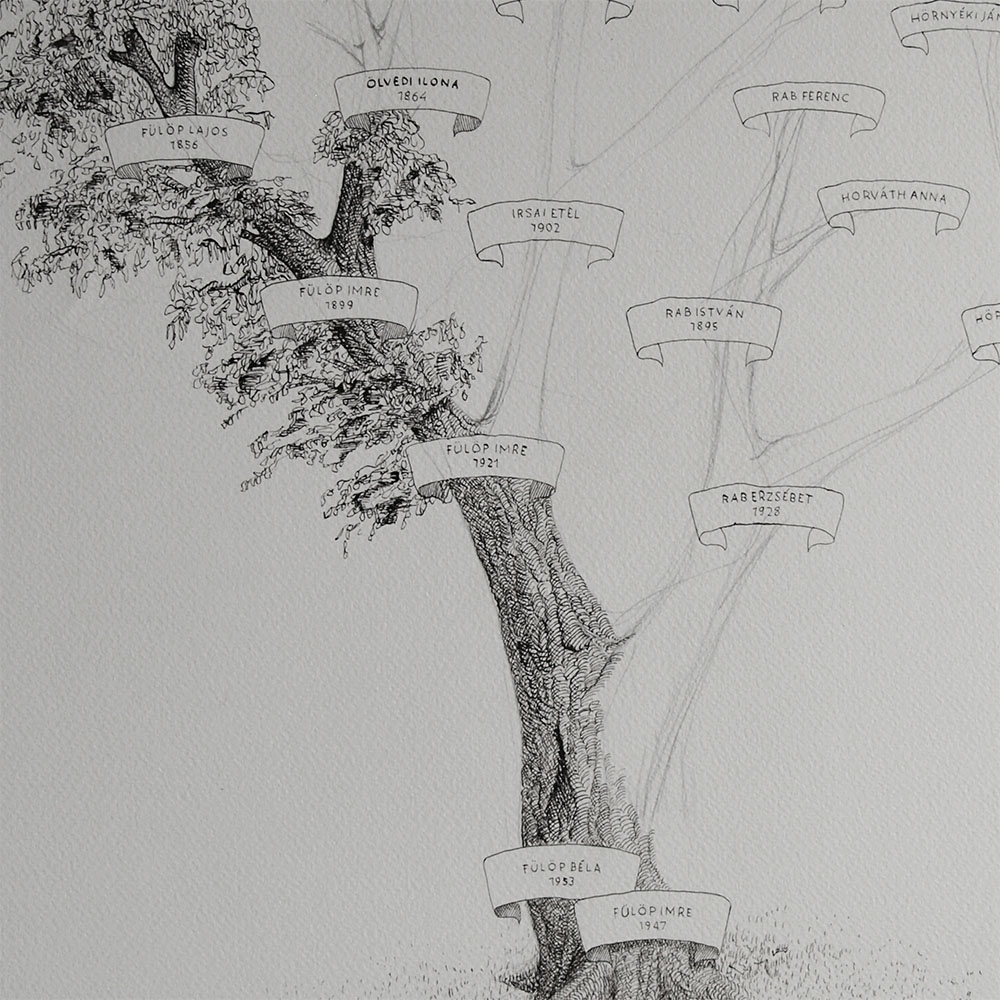 HÖRNYÉKI JÁN
ÖLVEDI ILONA
1864
RAB FERENC
FÜLÖP LAJOS
1856
HORVÁTH ANNA
IRSAI ETEL
1902
FÜLÖP IMRE
1899
RAB ISTVÁN
1895
FÜLÖP IMRE
1921
RAB ERZSÉBET
1928
FÜLÖP BÉLA
1953
FÜLÖP IMRE
1947